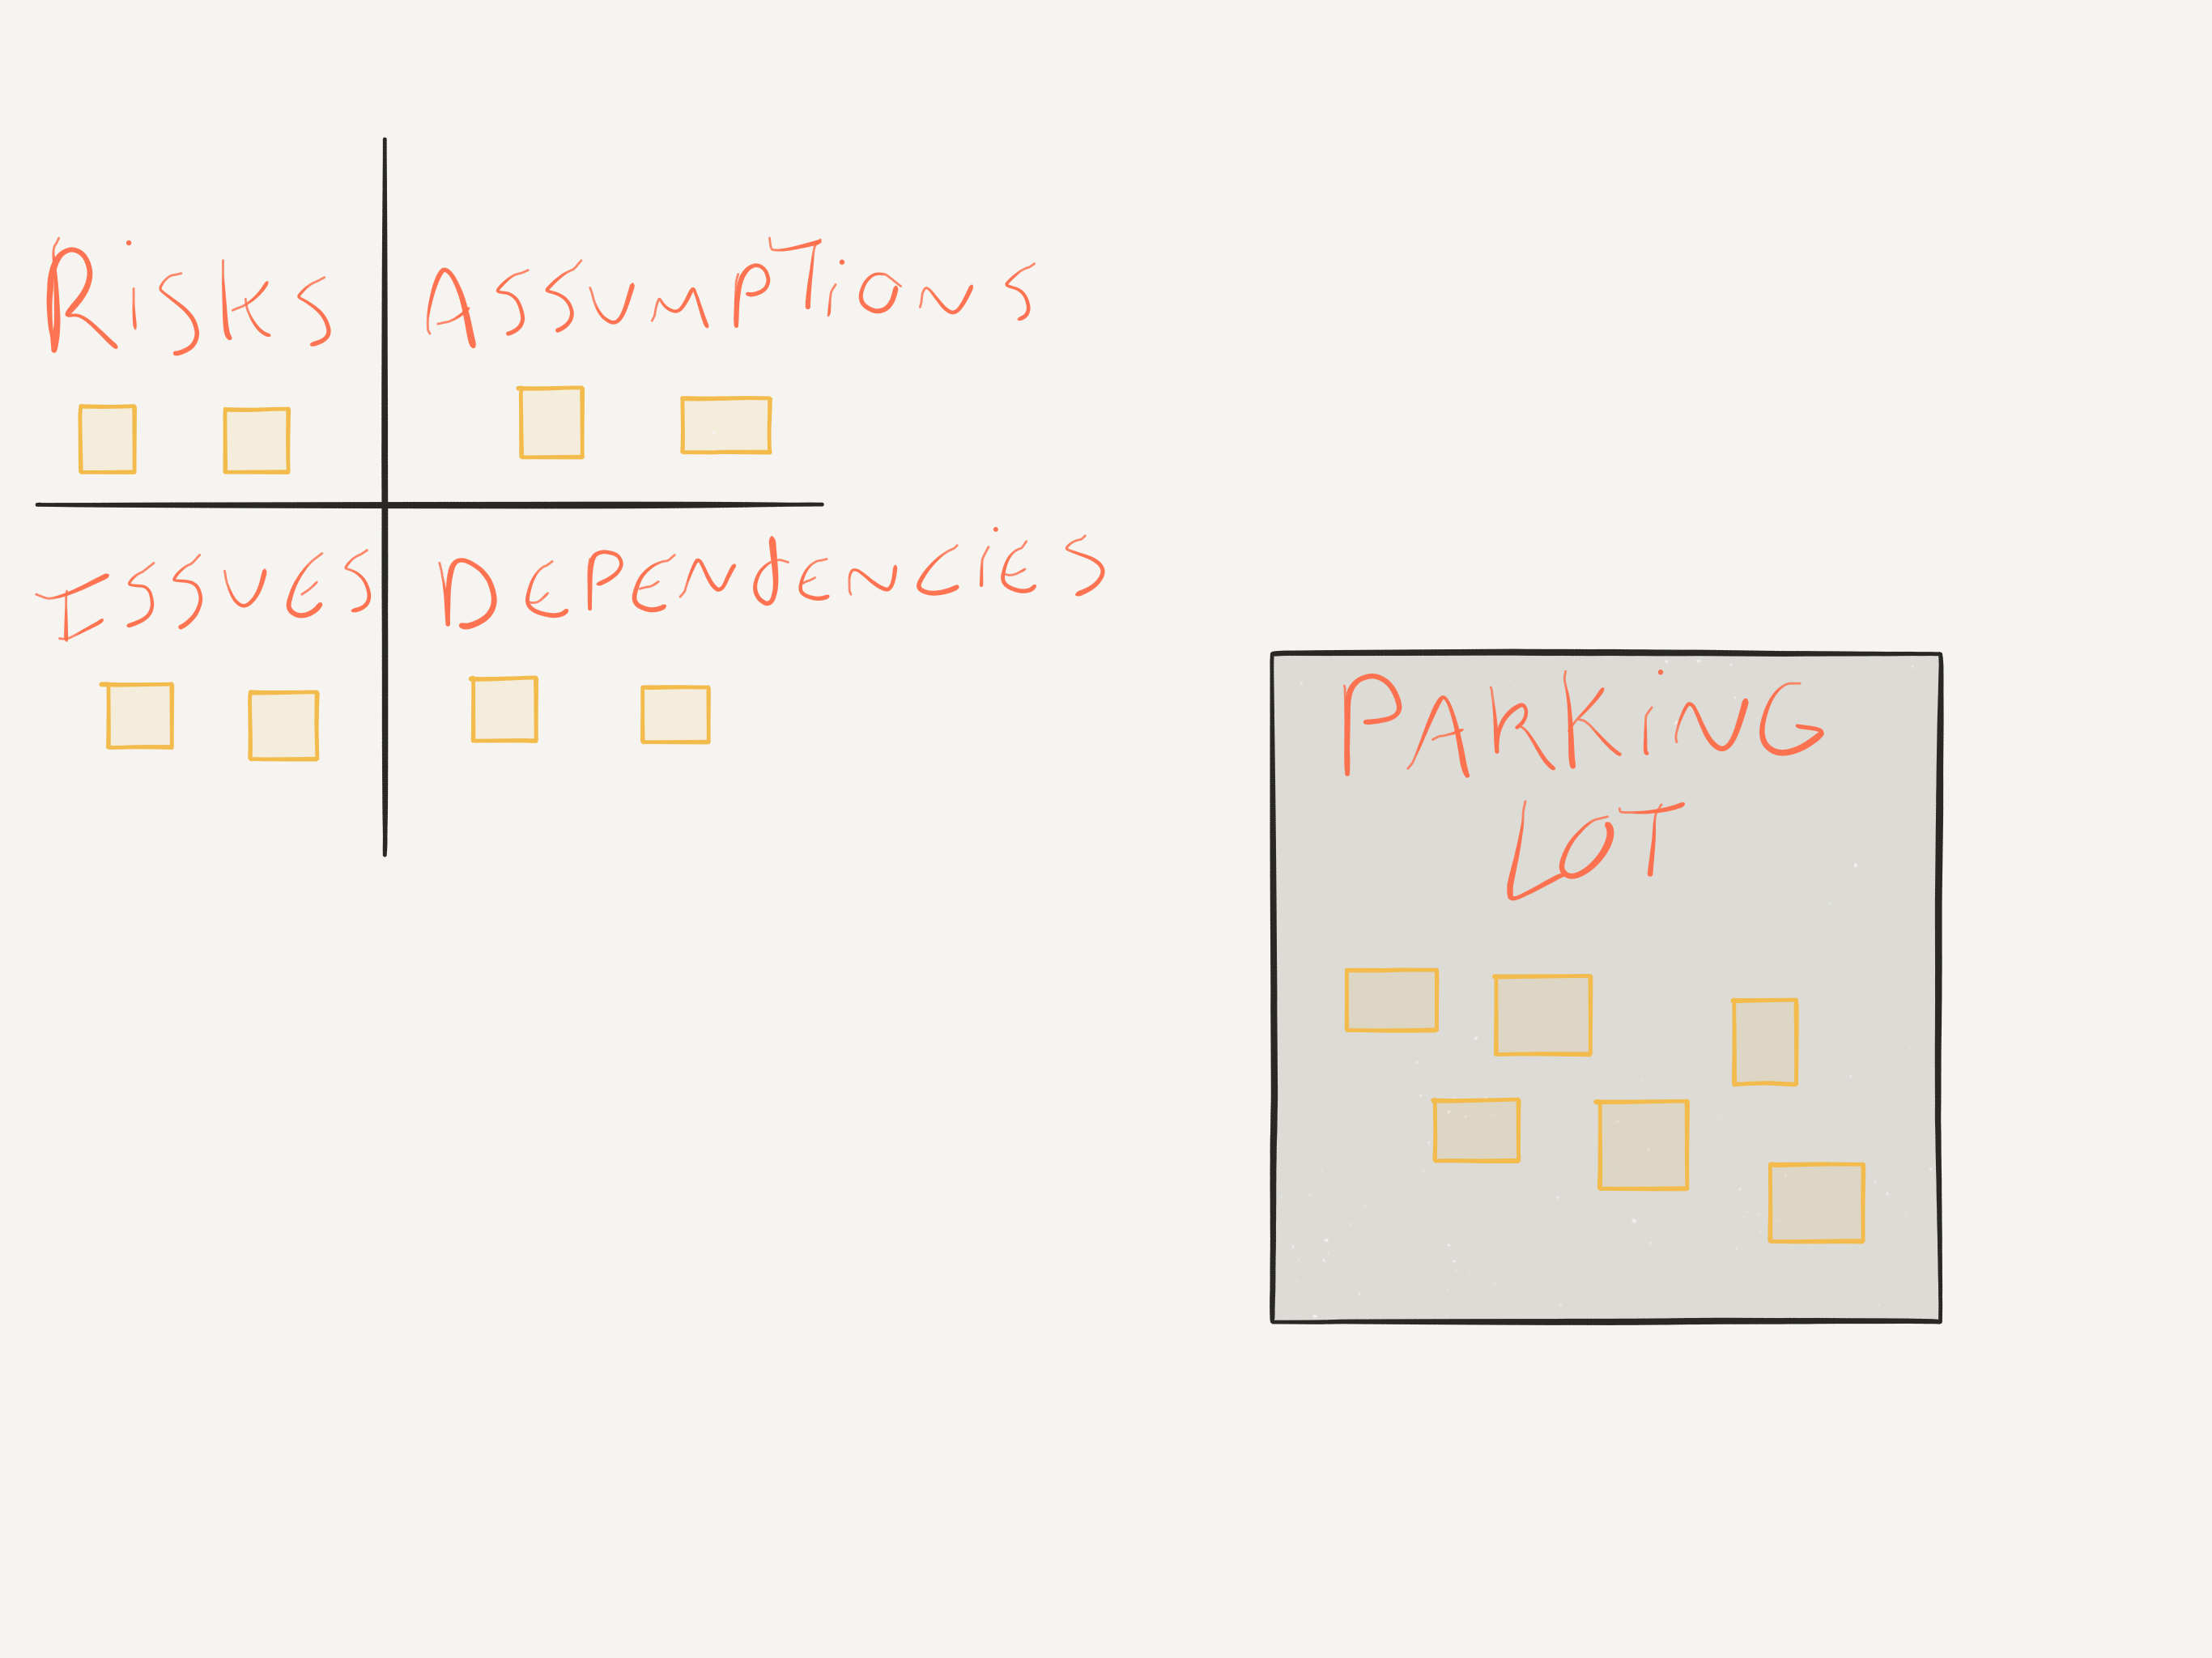 Risks
AssumPTions
Issues
DEPENdENCiES
PARKiNG
LOT